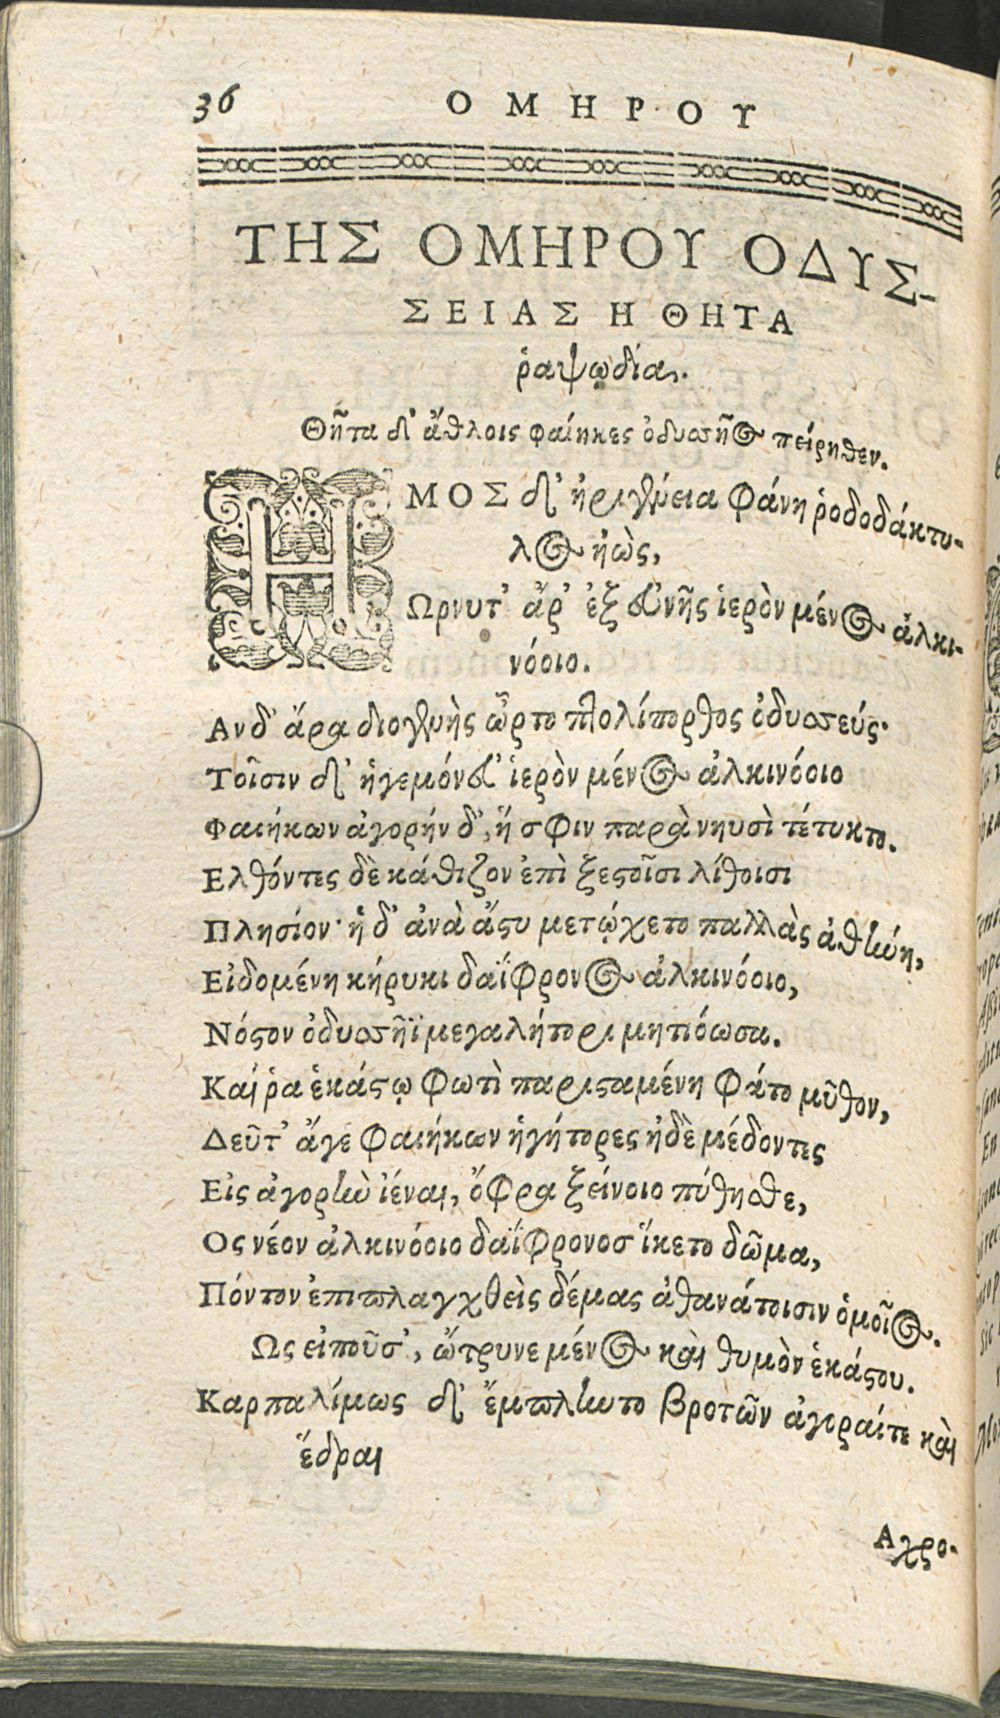 36 ΟΜΗΡΟΥ
ΤΗΣ ΟΜΗΡΟΥ ΟΔΥΣ-
ΣΕΙΑΣ Η ΘΗΤΑ
ῥαψῳδίας.
Θῆτα δ' ἄθλοις φαίηκες ὀδυσσῆος πείρηθεν.
ΗΜΟΣ δ' ἠριγένεια φάνη ῥοδοδάκτυ-
λος ἠὼς,
Ωρνυτ' ἄρ' ἐξ εὐνῆς ἱερὸν μένος ἀλκι-
νόοιο.
Αν δ' ἄρα διογενὴς ὦρτο πτολίπορθος ὀδυσσεύς·
Τοῖσιν δ' ἡγεμόνευ' ἱερὸν μένος ἀλκινόοιο
Φαιήκων ἀγορήν δ', ἥ σφιν παρὰ νηυσὶ τέτυκτο.
Ελθόντες δὲ κάθιζον ἐπὶ ξεστοῖσι λίθοισι
Πλησίον· ἡ δ' ἀνὰ ἄστυ μετῴχετο παλλὰς ἀθήνη,
Εἰδομένη κήρυκι δαΐφρονος ἀλκινόοιο,
Νόστον ὀδυσσῆϊ μεγαλήτορι μητιόωσα.
Καί ῥα ἑκάστῳ φωτὶ παρισταμένη φάτο μῦθον,
Δεῦτ' ἄγε φαιήκων ἡγήτορες ἠδὲ μέδοντες
Εἰς ἀγορὴν ἰέναι, ὄφρα ξείνοιο πύθησθε,
Ος νέον ἀλκινόοιο δαΐφρονοσ ἵκετο δῶμα,
Πόντον ἐπιπλαγχθεὶς δέμας ἀθανάτοισιν ὁμοῖος.
Ως εἰποῦσ', ὤτρυνε μένος καὶ θυμὸν ἑκάστου.
Καρπαλίμως δ' ἔμπληντο βροτῶν ἀγοραίτε καὶ
ἕδραι
Αγρο-